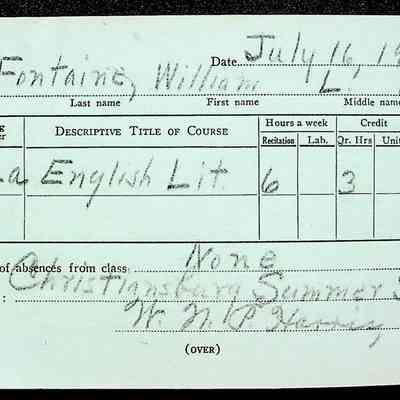 Date July 16, 19
Fontaine, William L.
Last name First name Middle name
DESCRIPTIVE TITLE OF COURSE Hours a week Credit
Recitation Lab. Qr. Hrs Unit
a English Lit. 6 3
of absences from class None
: Christiansburg Summer S
W. N. P. Harris
(OVER)